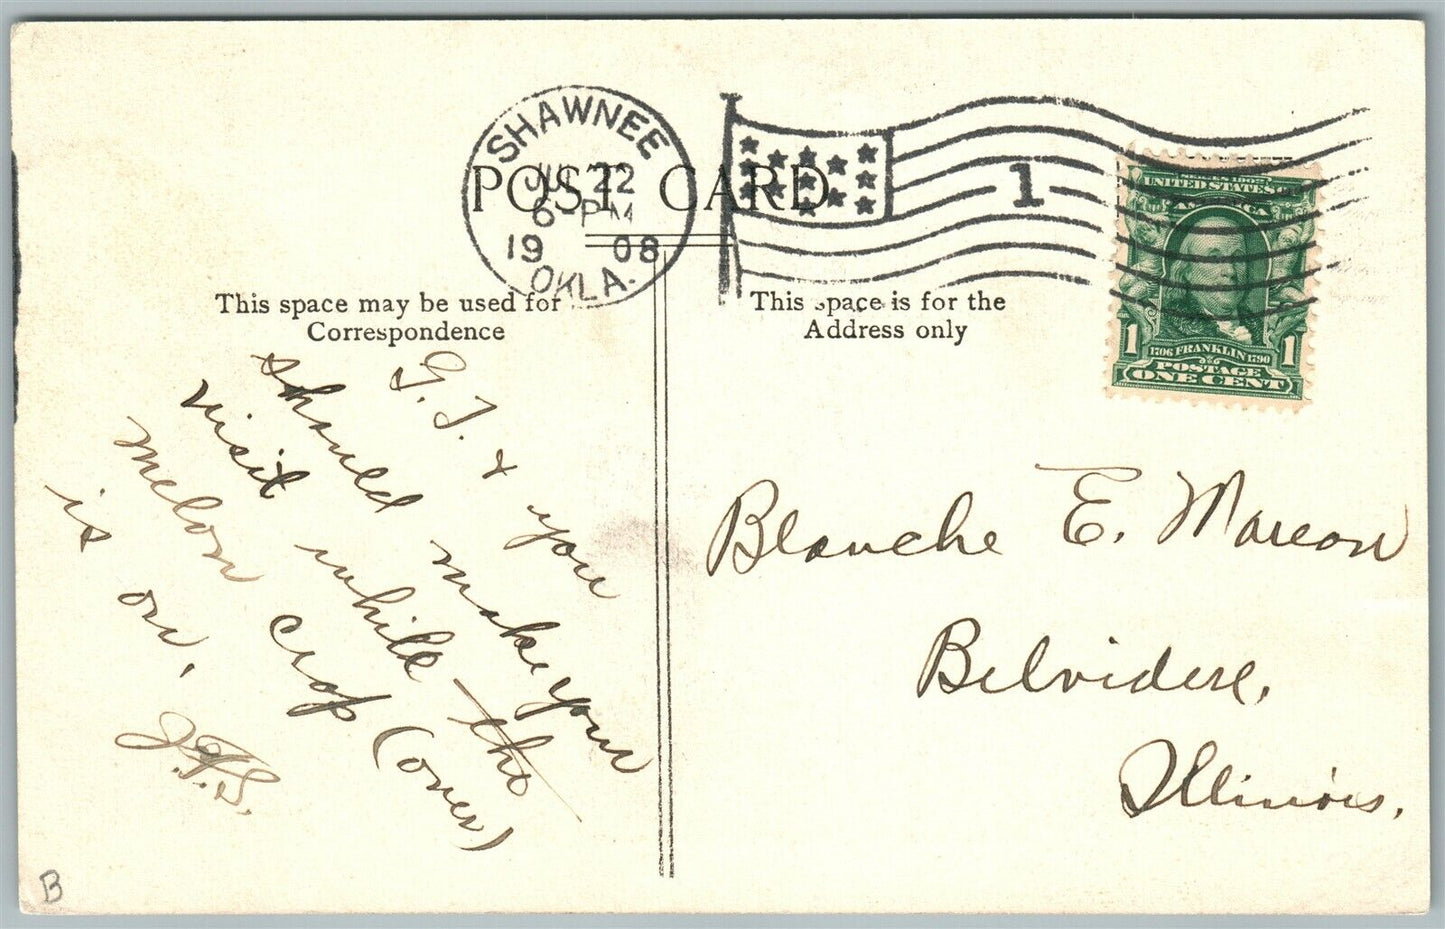 SHAWNEE
JUL 22
6-PM
19 08
OKLA.
1
POST CARD
This space may be used for
Correspondence
This space is for the
Address only
SERIES 1902
UNITED STATES OF
AMERICA
1706 FRANKLIN 1790
POSTAGE
1 ONE CENT 1
G. T. & you
should make your
visit while the
melon crop (over)
is on.
J.F.S.
Blanche E. Marean
Belvidere,
Illinois.
B